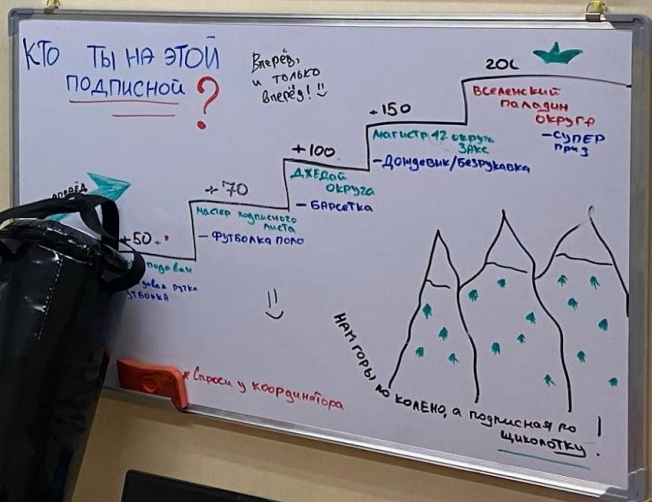 КТО ТЫ НА ЭТОЙ
ПОДПИСНОЙ ?
Вперёд,
и только
вперёд!
ВПЕРЁД
+50
падаван
ручка
+70
Мастер подписного
листа
– ФУТБОЛКА ПОЛО
+100
ДЖЕДАЙ
ОКРУГА
– БАРСЕТКА
+150
МАГИСТР 12 округ
ЗАКС
– Дождевик/БЕЗРУКАВКА
200
ВСЕЛЕНСКИЙ
ПАЛАДИН
ОКРУГА
– СУПЕР
ПРИЗ
НАМ ГОРЫ по КОЛЕНО, а подписная по
ЩИКОЛОТКУ!
* Спроси у координатора